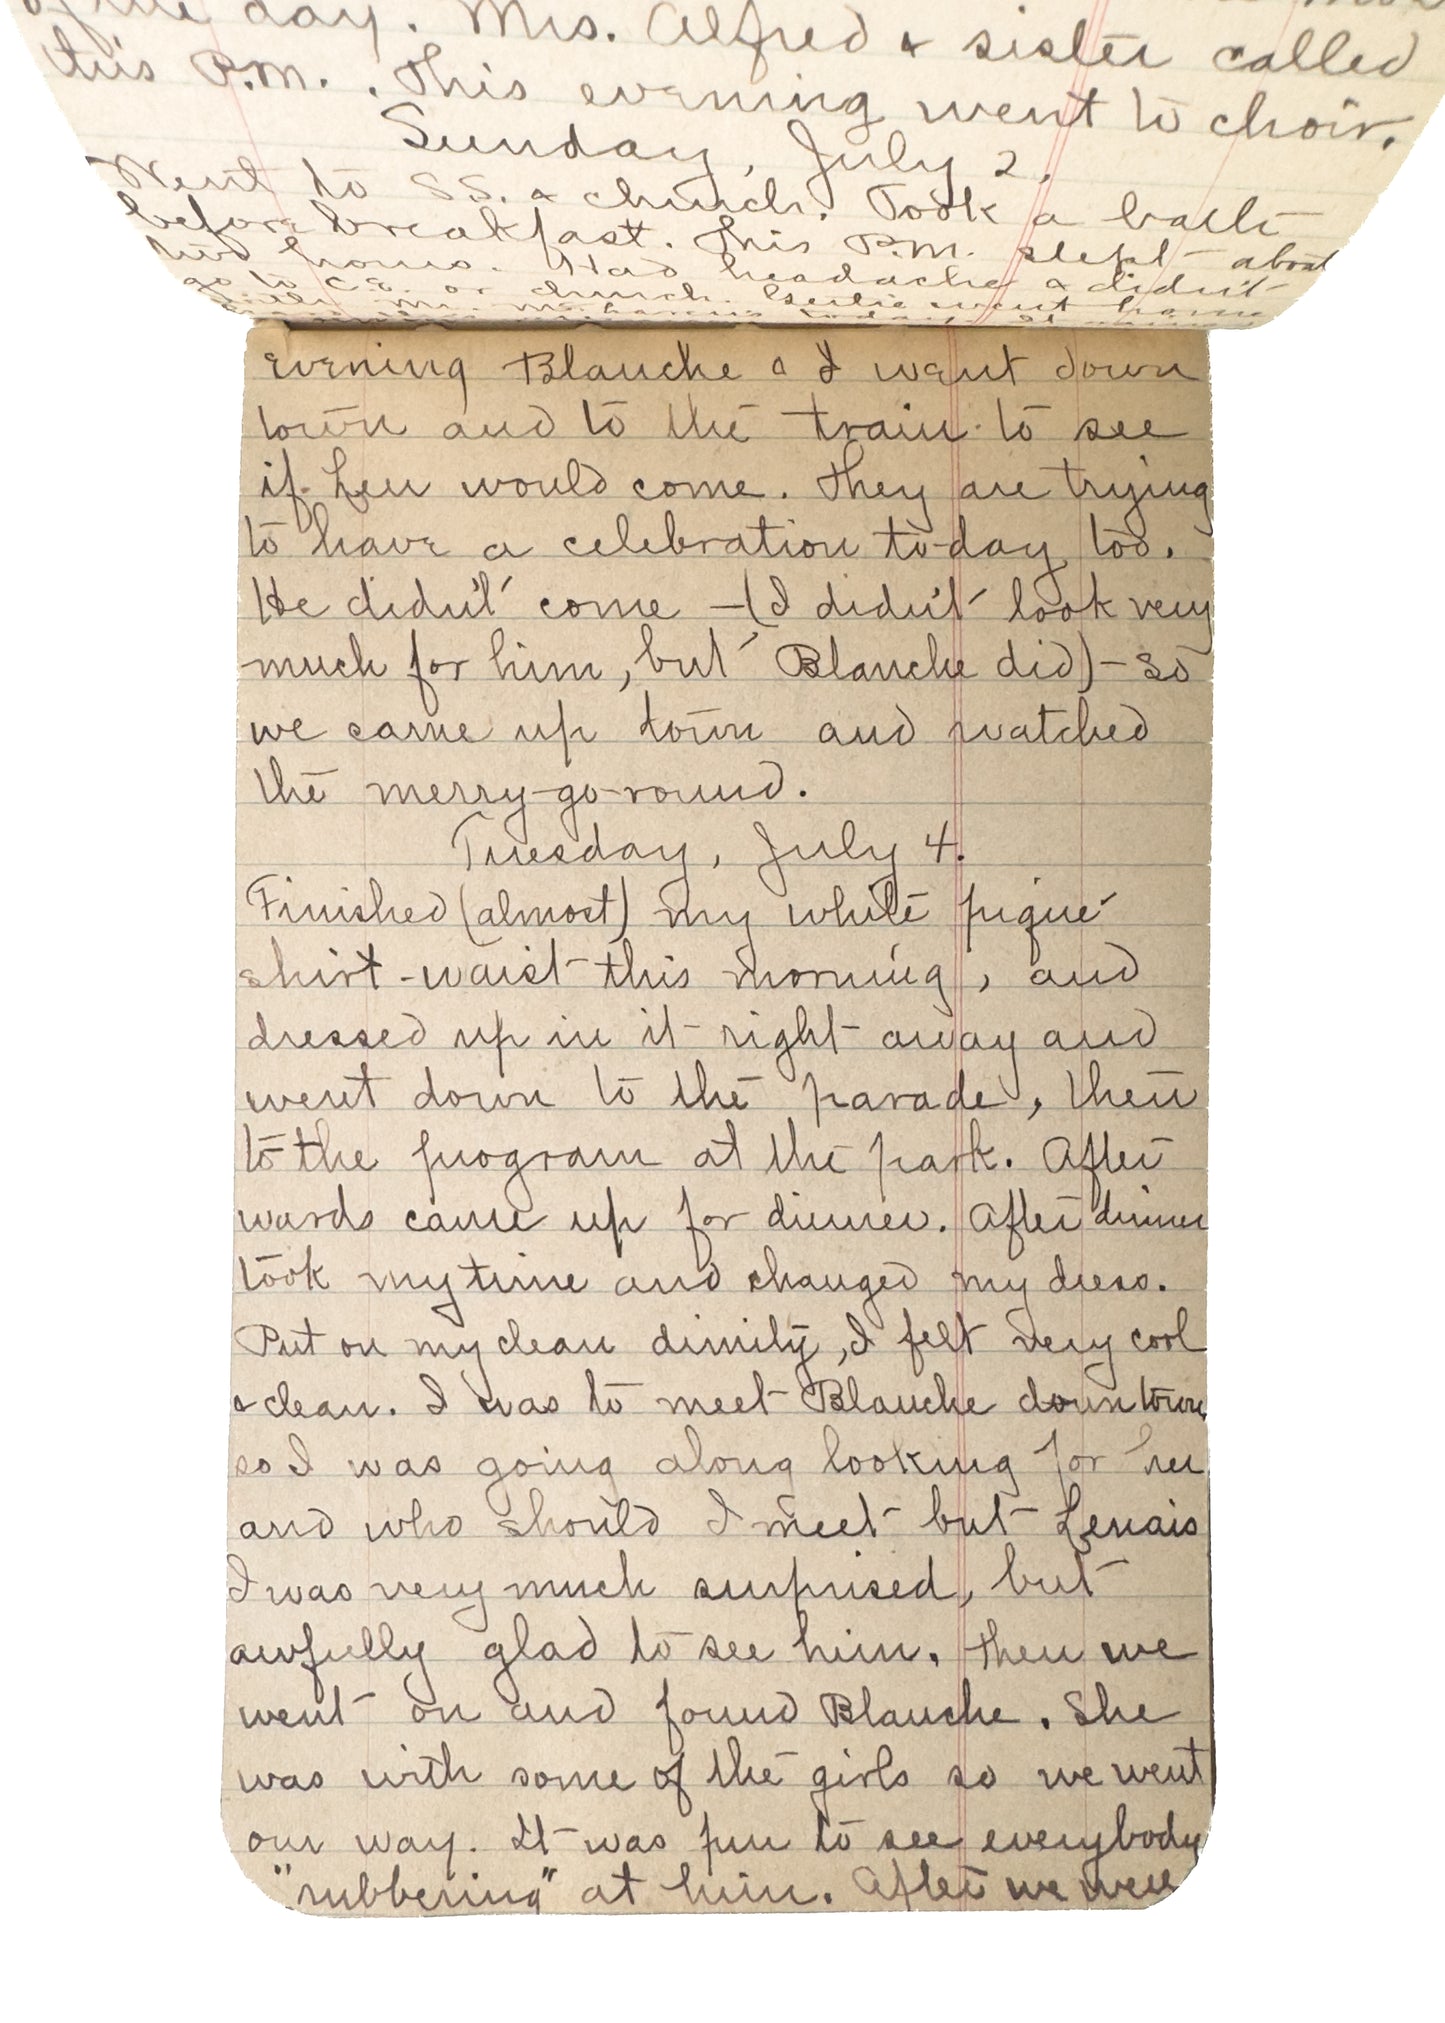 of the day. Mrs. Alfred & sister called
this P.M. . This evening went to choir.
Sunday, July 2.
Went to S.S. & church. Took a bath
before breakfast. This P.M. slept about
two hours. Had headache & didn't
go to C.E. or church. went home
evening Blanche & I went down
town and to the train to see
if Len would come. They are trying
to have a celebration to-day too.
He didn't come – (I didn't look very
much for him, but Blanche did) – so
we came up town and watched
the merry-go-round.
Tuesday, July 4.
Finished (almost) my white piqué
shirt-waist this morning, and
dressed up in it right away and
went down to the parade, then
to the program at the park. After
wards came up for dinner. After dinner
took my time and changed my dress.
Put on my clean dimity, I felt very cool
& clean. I was to meet Blanche down town
so I was going along looking for her
and who should I meet but Lenais
I was very much surprised, but
awfully glad to see him. Then we
went on and found Blanche. She
was with some of the girls so we went
our way. It was fun to see everybody
"rubbering" at him. After we were